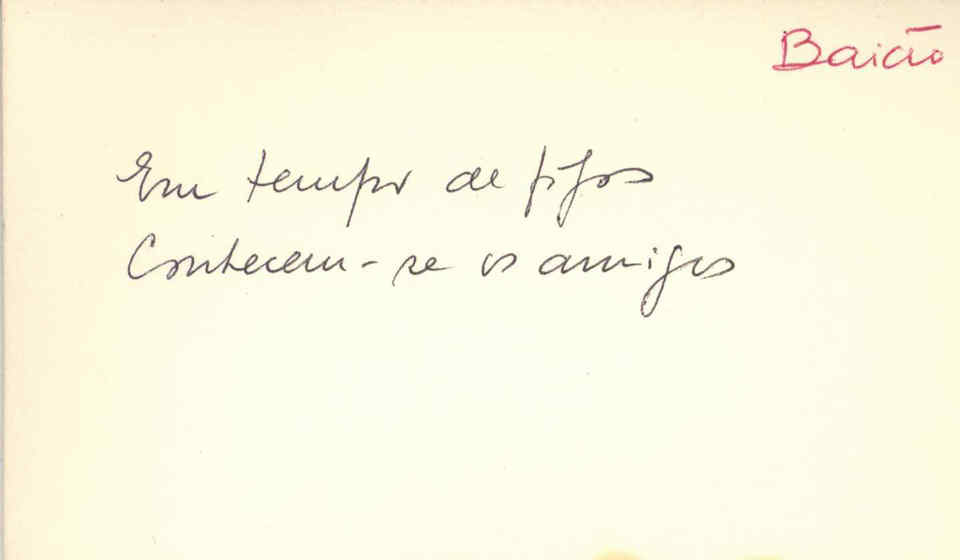 Baião
Em tempo de figos
Conhecem-se os amigos